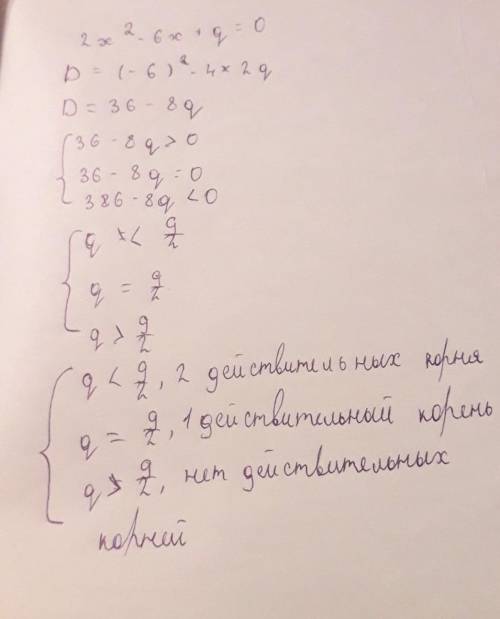 2x² - 6x + q = 0
D = (-6)² - 4 × 2q
D = 36 - 8q
36 - 8q > 0
36 - 8q = 0
386 - 8q < 0
q < 9/2
q = 9/2
q > 9/2
q < 9/2, 2 действительных корня
q = 9/2, 1 действительный корень
q > 9/2, нет действительных
корней